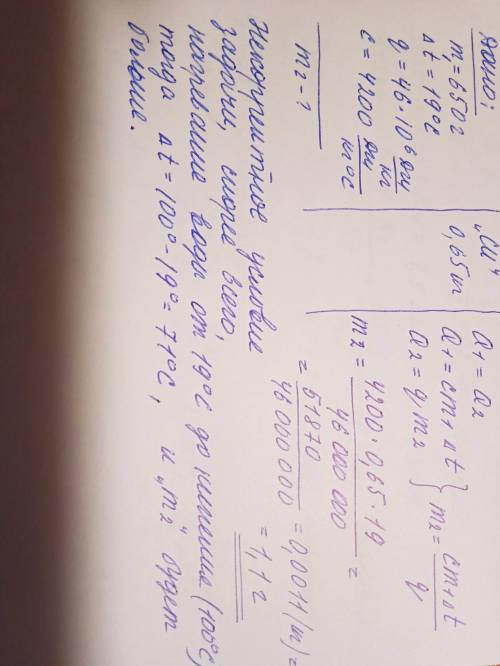 Дано:
m₁=650г
Δt=19°C
q=46·10⁶ Дж/кг
c=4200 Дж/кг°C
m₂-?
"СИ"
0,65кг
Q₁=Q₂
Q₁=cm₁Δt
Q₂=qm₂
} m₂=cm₁Δt/q
m₂=4200·0,65·19/46000000=
=51870/46000000=0,0011(кг)=
=1,1г
Некорректное условие
задачи, скорее всего,
нагревание воды от 19°C до кипения (100°C),
тогда Δt=100°-19°=71°C, и "m₂" будет
больше.